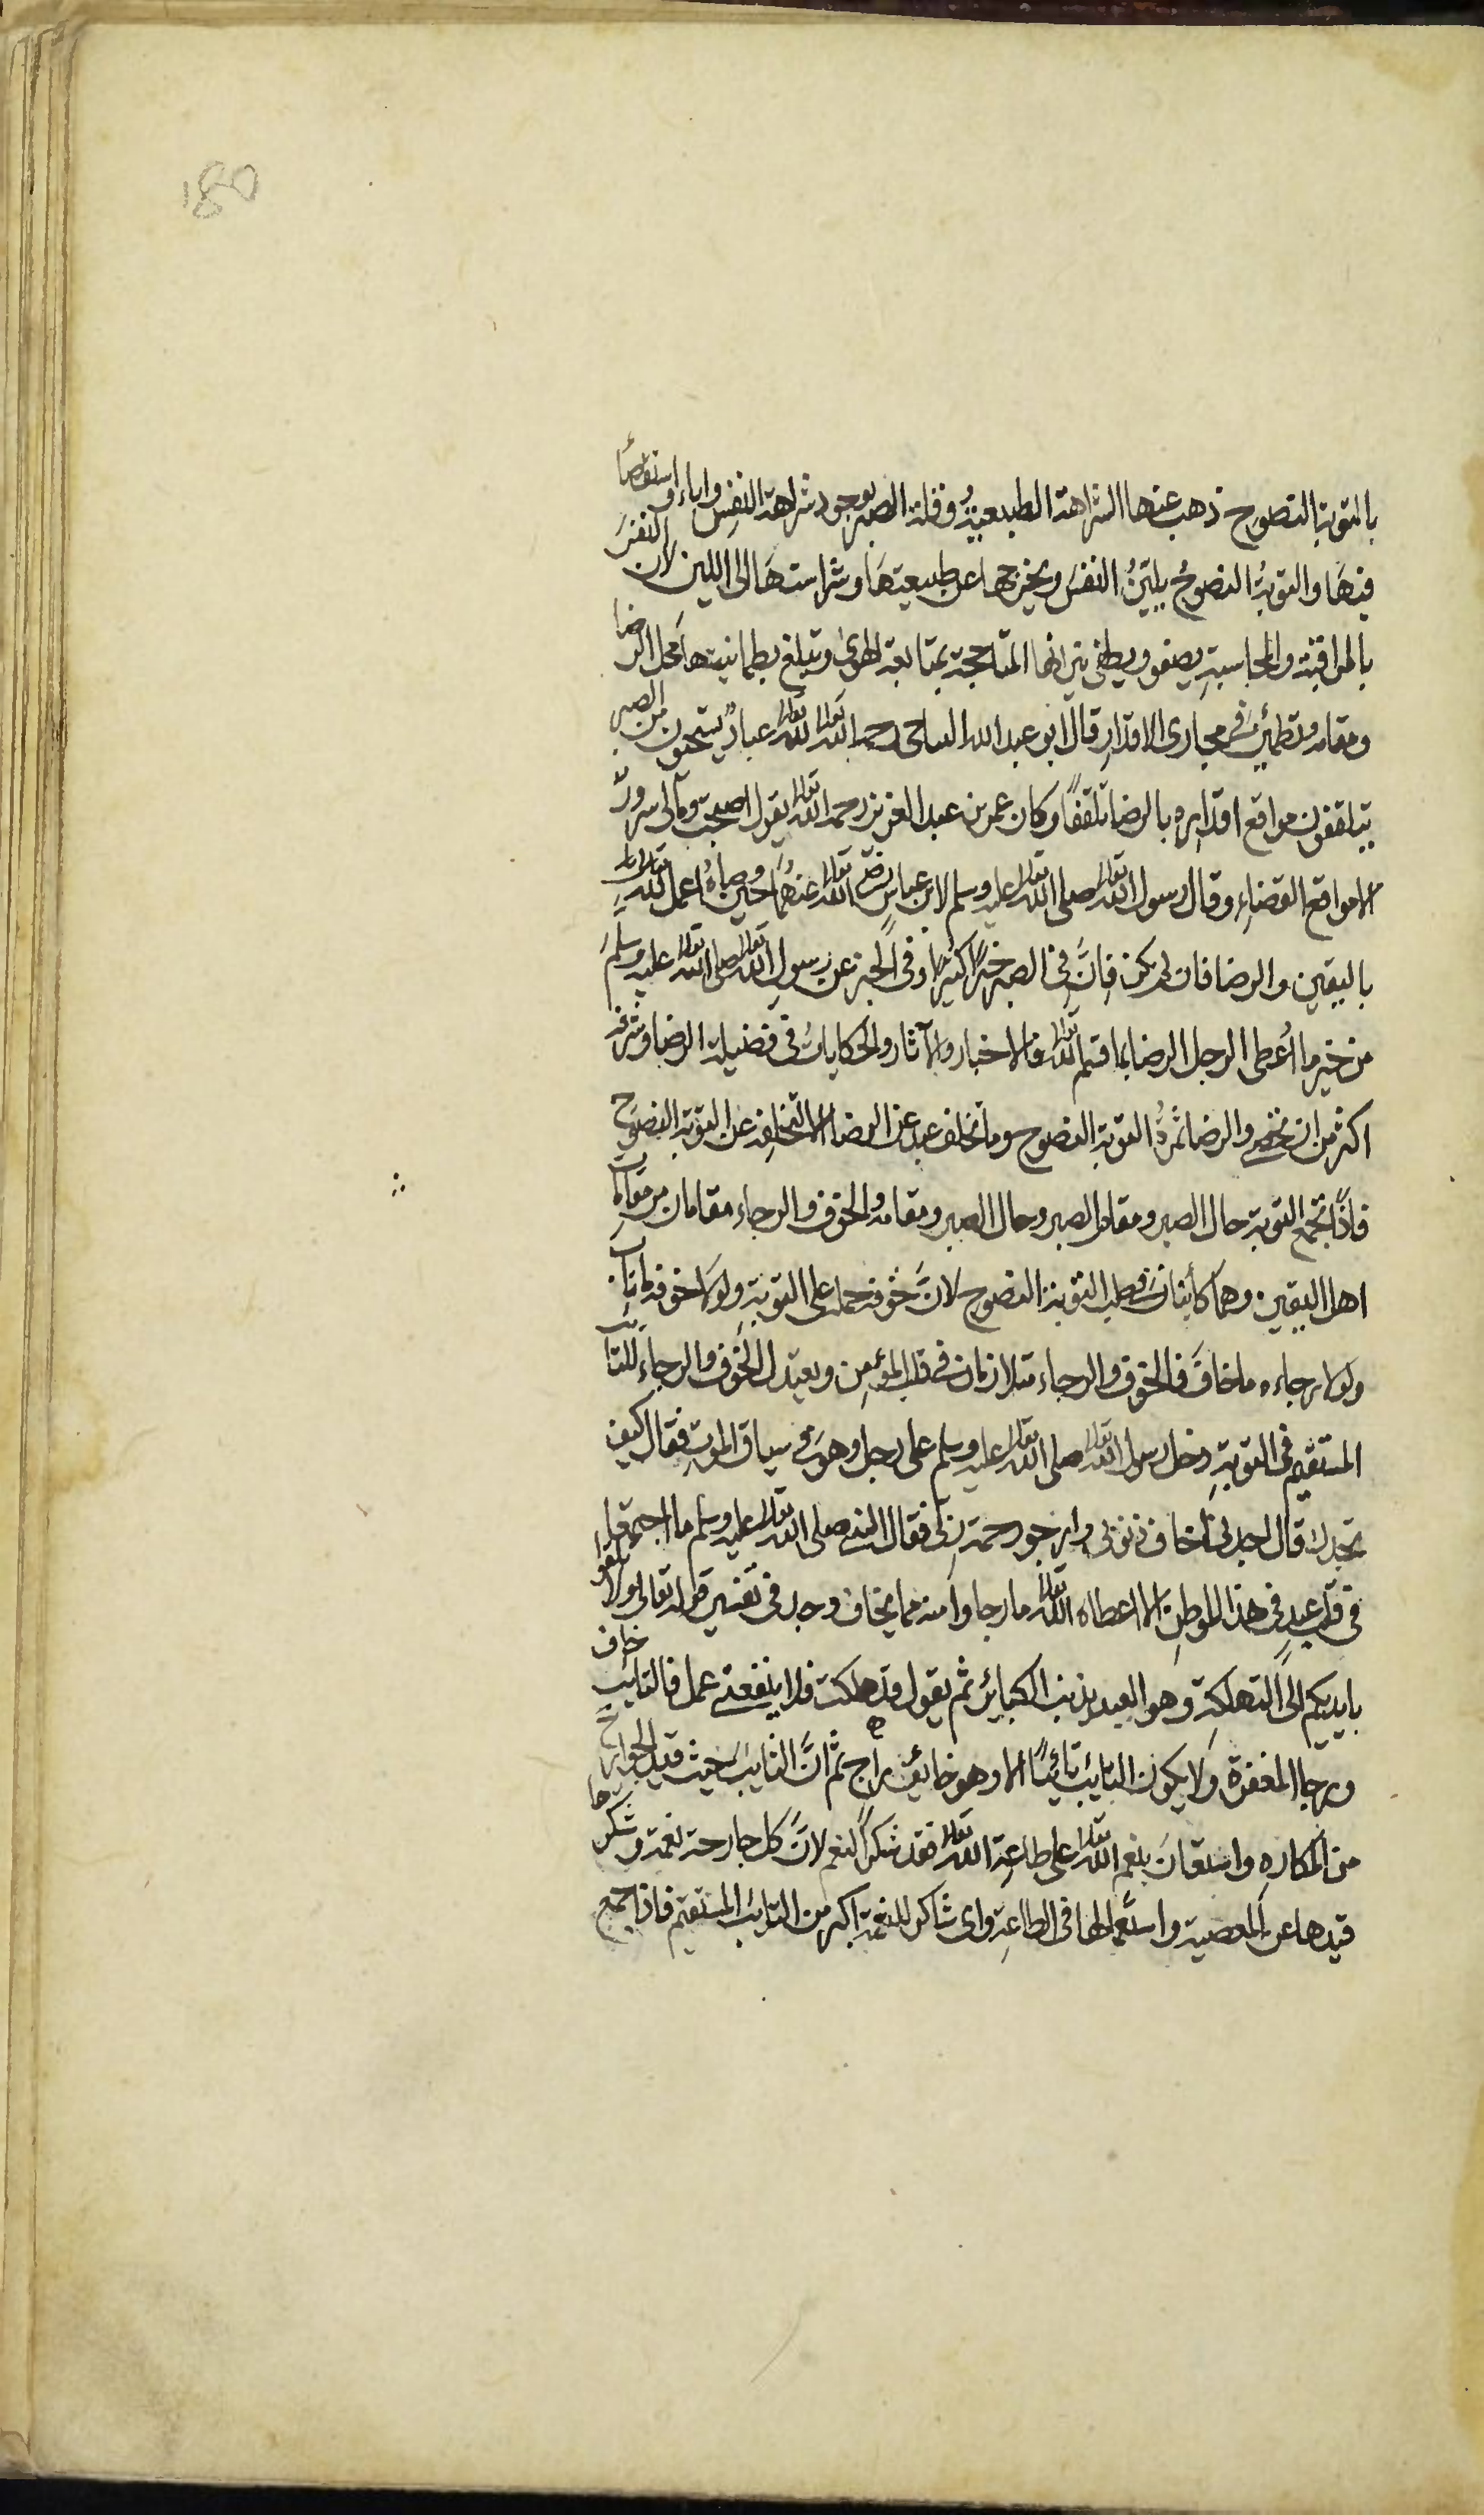 180
بالتوبة النصوح ذهب عنها الشراهة الطبيعية وقلة الصبر بوجود شراهة النفس واباء واستعصاء
فيها والتوبة النصوح يلين النفس ويخرجها عن طبيعتها وشراستها الى اللين لان النفس
بالمراقبة والمحاسبة يصفو ويطفى نيرانها المتاججة بمتابعة الهوى وتبلغ بطمانينتها محل الرضا
ومقامه وتطمئن فى مجارى الاقدار قال ابو عبد الله الساجى رحمه الله تعالى لله تعالى عباد يستحيون من الصبر
يتلقفون مواقع اقداره بالرضا تلقفا وكان عمر بن عبد العزيز رحمه الله تعالى يقول اصبحت وما لى سرور
الا مواقع القضاء وقال رسول الله تعالى صلى الله تعالى عليه وسلم لابن عباس رضى الله تعالى عنهما حين وصاه اعمل لله تعالى
باليقين والرضا فان لم يكن فان فى الصبر خيرا كثيرا وفى الخبر عن رسول الله تعالى صلى الله تعالى عليه وسلم
من خير ما اعطى الرجل الرضا بما قسم الله تعالى فالاخبار والآثار والحكايات فى فضيلة الرضا وشرفه
اكثر من ان تحصى والرضا ثمرة التوبة النصوح وما تخلف عبد عن الرضا الا بتخلفه عن التوبة النصوح
فاذا تجمع التوبة حال الصبر ومقام الصبر وحال الصبر ومقامه والخوف والرجاء مقامان من مقامات
اهل اليقين وهما كائنان فى صلب التوبة النصوح لان خوفه حمله على التوبة ولولا خوفه ما تاب
ولولا رجاءه ما خاف فالخوف والرجاء متلازمان فى قلب المؤمن ويعتدل الخوف والرجاء للتائب
المستقيم فى التوبة دخل رسول الله تعالى صلى الله تعالى عليه وسلم على رجل وهو فى سياق الموت فقال كيف
تجدك قال اجدنى اخاف ذنوبى وارجو رحمة ربى فقال النبى صلى الله تعالى عليه وسلم ما اجتمعا
فى قلب عبد فى هذا الموطن الا اعطاه الله تعالى ما رجا وآمنه مما يخاف وجاء فى تفسير قوله تعالى ولا تلقوا
بايديكم الى التهلكة وهو العبد يذنب الكبائر ثم يقول قد هلكت فلا ينفعنى عمل فالتائب خاف
ورجا المغفرة ولا يكون التائب تائبا الا وهو خائف راج ثم ان التائب حيث قيد الجوارح
من المكاره واستعان بنعم الله تعالى على طاعة الله تعالى فقد شكر النعم لان كل جارحة نعمة وشكرها
قيدها عن المعصية واستعمالها فى الطاعة واى شاكر للنعمة اكبر من التائب المستقيم فاذا جمع